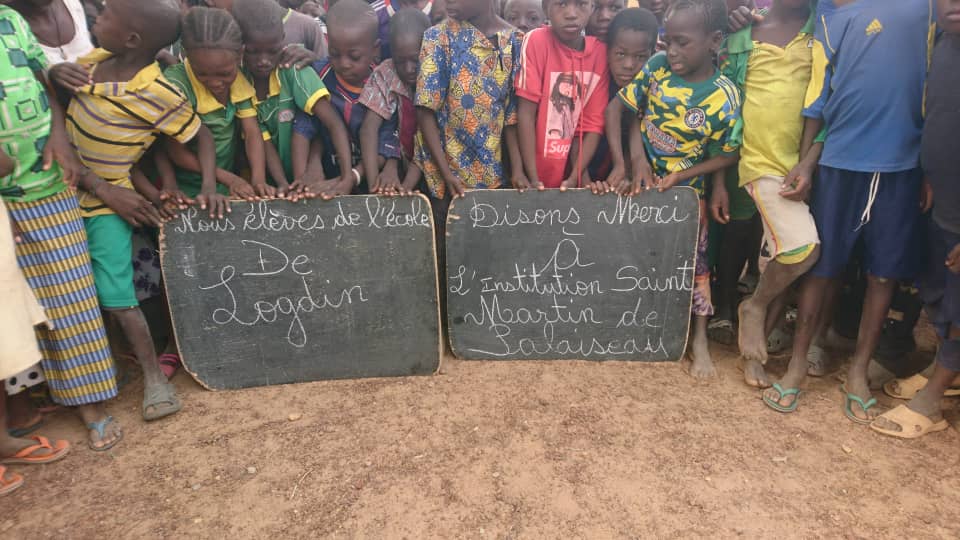 Nous élèves de l'école
De
Logdin
Disons Merci
A
L'Institution Saint
Martin de
Palaiseau
Sup